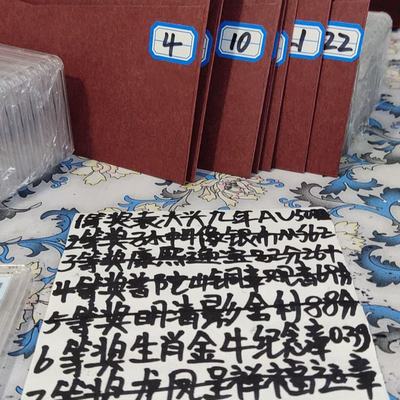 4
10
1
22
1等奖袁大头九年AU50
2等奖孙中山像银币MS62
3等奖康熙通宝22分26个
4等奖普陀山铜章观音69分
5等奖明清影金村88分
6等奖生肖金牛纪念章0.39
7等奖龙凤呈祥福运章